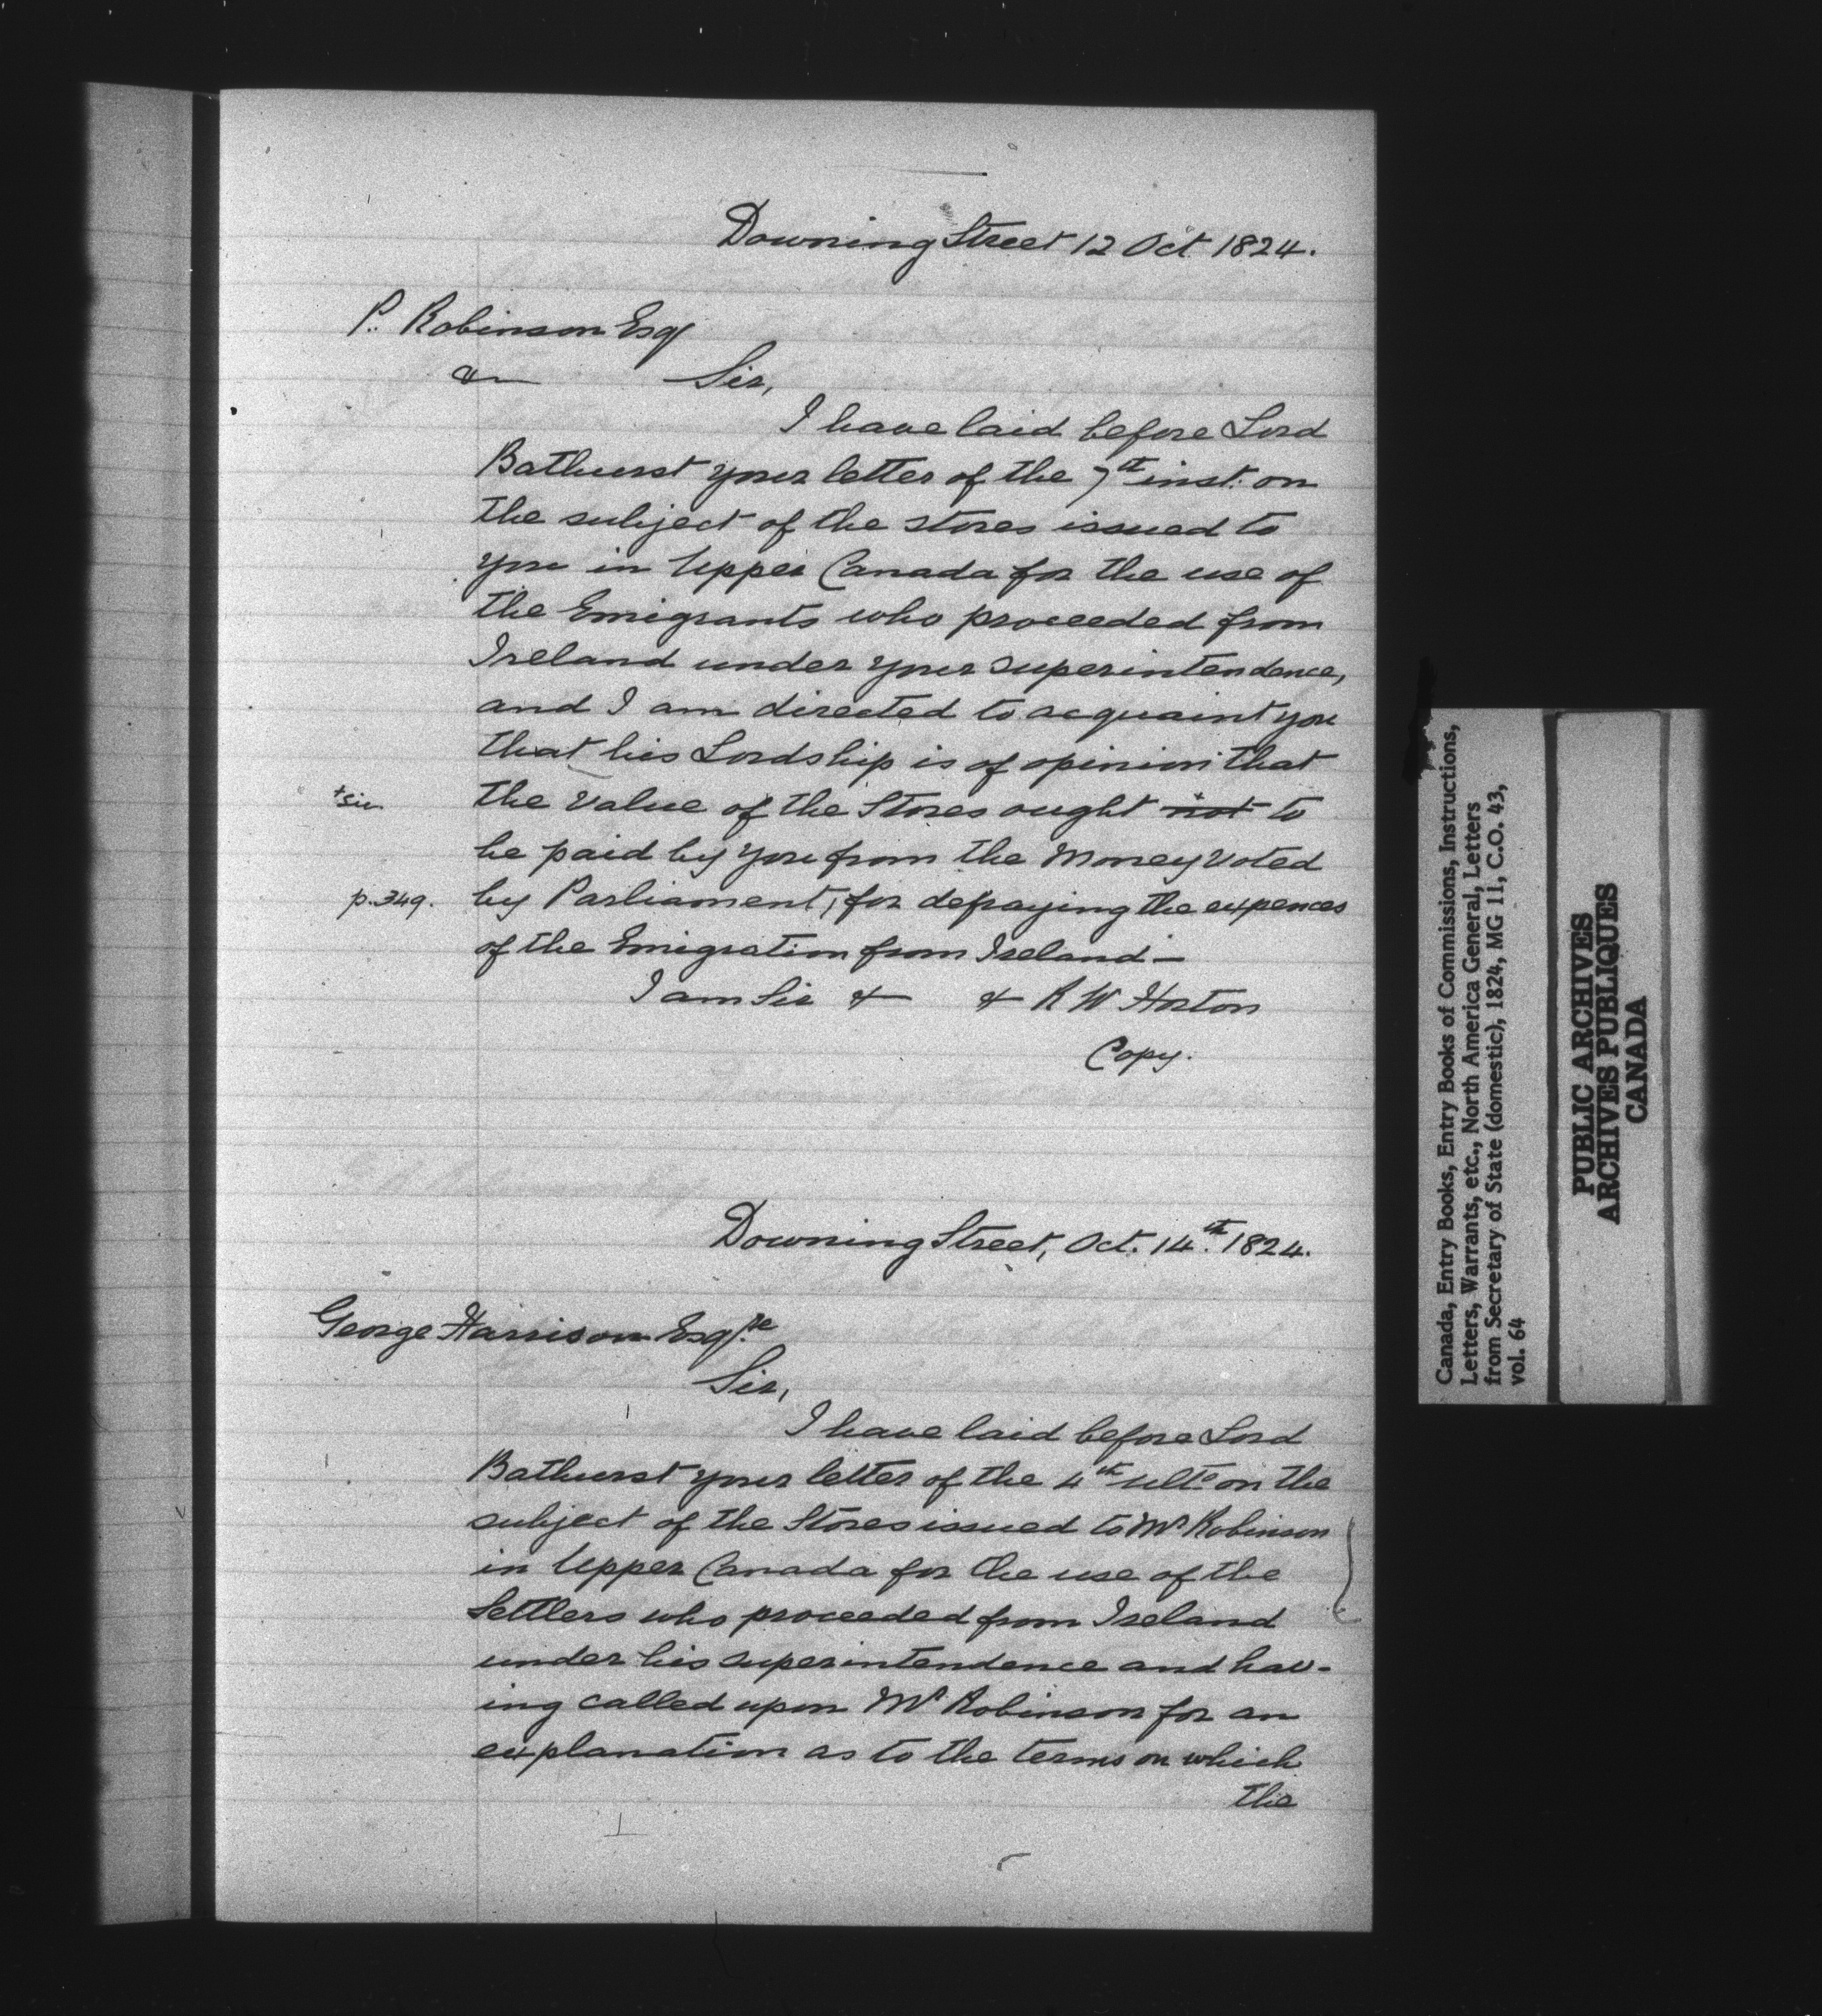 Downing Street 12 Oct. 1824.
P. Robinson Esq
&c Sir,
I have laid before Lord
Bathurst your letter of the 7th inst. on
the subject of the stores issued to
you in Upper Canada for the use of
the Emigrants who proceeded from
Ireland under your superintendence,
and I am directed to acquaint you
that his Lordship is of opinion that
+sic the value of the Stores ought not to
be paid by you from the Money voted
p.349. by Parliament, for defraying the expences
of the Emigration from Ireland -
I am Sir & & R W Horton
Copy.
Downing Street, Oct. 14th. 1824.
George Harrison Esqre
Sir,
I have laid before Lord
Bathurst your letter of the 4th ulto on the
subject of the Stores issued to Mr Robinson
in Upper Canada for the use of the
Settlers who proceeded from Ireland
under his superintendence and hav-
ing called upon Mr Robinson for an
explanation as to the terms on which
the
Canada, Entry Books, Entry Books of Commissions, Instructions,
Letters, Warrants, etc., North America General, Letters
from Secretary of State (domestic), 1824, MG 11, C.O. 43,
vol. 64
PUBLIC ARCHIVES
ARCHIVES PUBLIQUES
CANADA